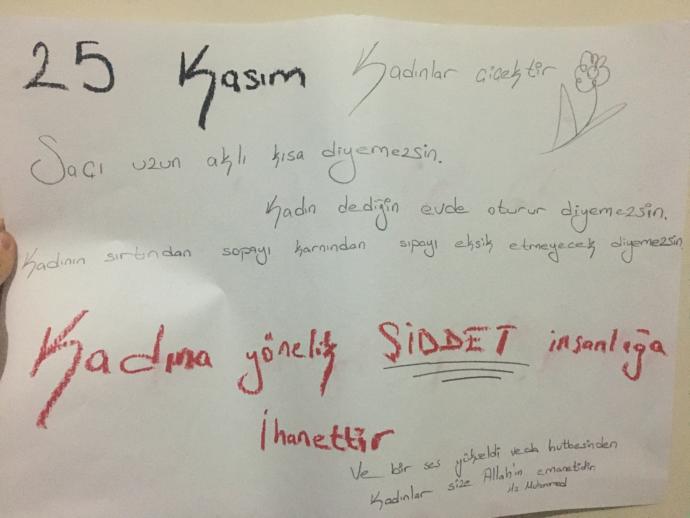 25 Kasım Kadınlar çiçektir
Saçı uzun aklı kısa diyemezsin.
Kadın dediğin evde oturur diyemezsin.
Kadının sırtından sopayı karnından sıpayı eksik etmeyecek diyemezsin
Kadına yönelik ŞİDDET insanlığa
İhanettir
Ve bir ses yükseldi veda hutbesinden
Kadınlar size Allah'ın emanetidir.
Hz Muhammed